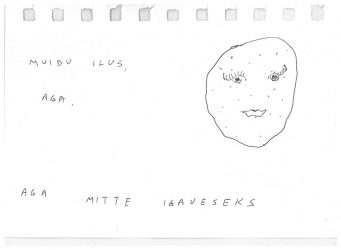 MUIDU ILUS,
AGA,
AGA MITTE IGAVESEKS